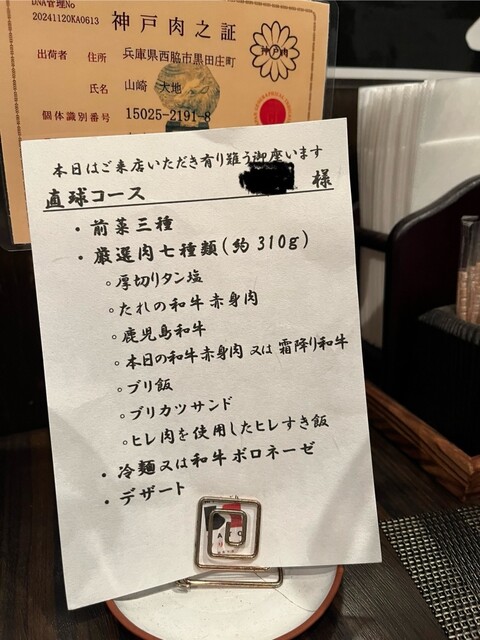 DNA管理No
20241120KA0613
神戸肉之証
神戸肉
出荷者 住所 兵庫県西脇市黒田庄町
氏名 山崎 大地
個体識別番号 15025-2191-8
本日はご来店いただき有り難う御座います
直球コース 様
・前菜三種
・厳選肉七種類(約310g)
○厚切りタン塩
○たれの和牛赤身肉
○鹿児島和牛
○本日の和牛赤身肉又は霜降り和牛
○ブリ飯
○ブリカツサンド
○ヒレ肉を使用したヒレすき飯
・冷麺又は和牛ボロネーゼ
・デザート